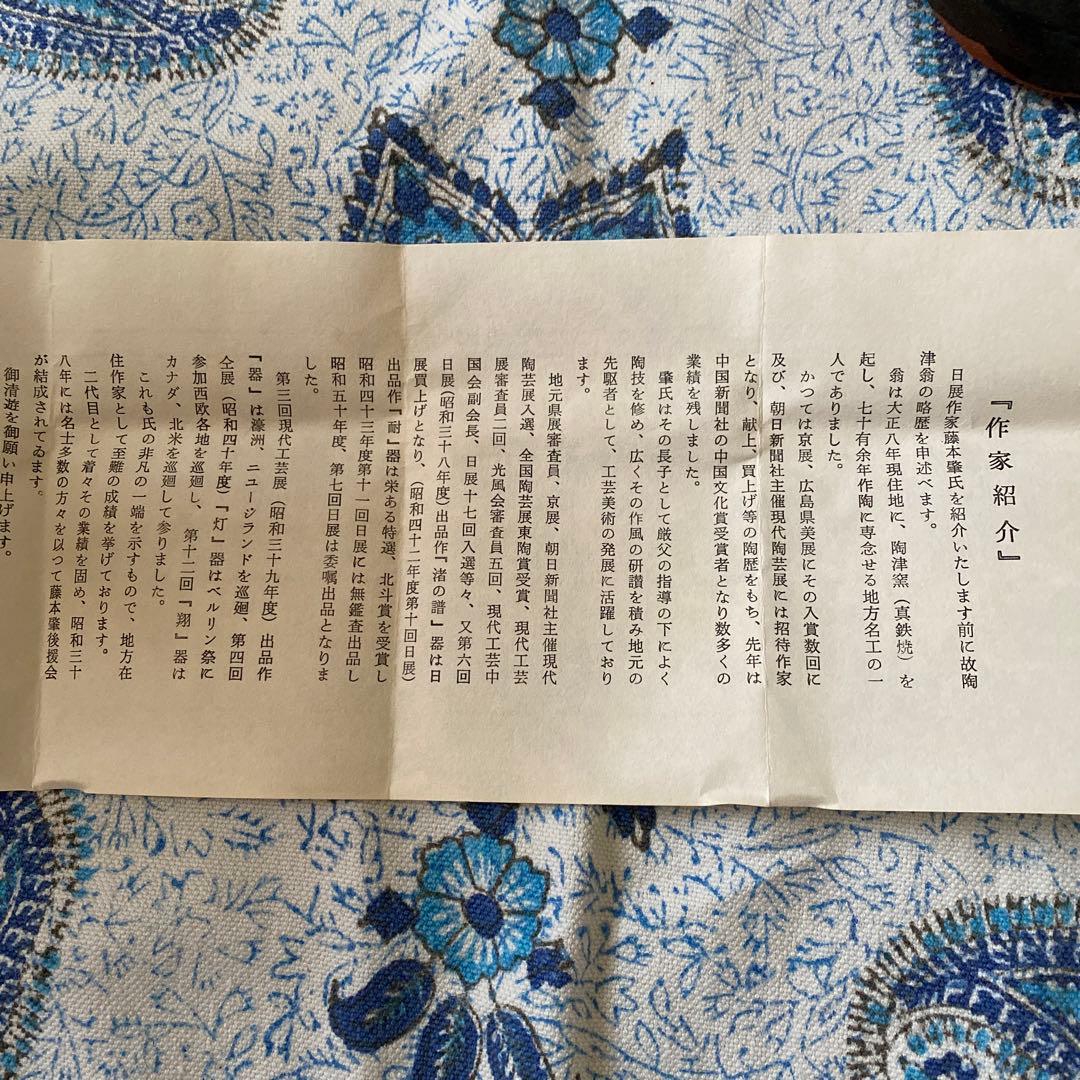 『作家紹介』
日展作家藤本肇氏を紹介いたします前に故陶
津翁の略歴を申述べます。
翁は大正八年現住地に、陶津窯（真鉄焼）を
起し、七十有余年作陶に専念せる地方名工の一
人でありました。
かつては京展、広島県美展にその入賞数回に
及び、朝日新聞社主催現代陶芸展には招待作家
となり、献上、買上げ等の陶歴をもち、先年は
中国新聞社の中国文化賞受賞者となり数多くの
業績を残しました。
肇氏はその長子として厳父の指導の下によく
陶技を修め、広くその作風の研讃を積み地元の
先駆者として、工芸美術の発展に活躍しており
ます。
地元県展審査員、京展、朝日新聞社主催現代
陶芸展入選、全国陶芸展東陶賞受賞、現代工芸
展審査員二回、光風会審査員五回、現代工芸中
国会副会長、日展十七回入選等々、又第六回
日展（昭和三十八年度）出品作『渚の譜』器は日
展買上げとなり、（昭和四十二年度第十回日展）
出品作『耐』器は栄ある特選、北斗賞を受賞し
昭和四十三年度第十一回日展には無鑑査出品し
昭和五十年度、第七回日展は委嘱出品となりま
した。
第三回現代工芸展（昭和三十九年度）出品作
『器』は濠洲、ニュージランドを巡廻、第四回
仝展（昭和四十年度）『灯』器はベルリン祭に
参加西欧各地を巡廻し、第十二回『翔』器は
カナダ、北米を巡廻して参りました。
これも氏の非凡の一端を示すもので、地方在
住作家として至難の成績を挙げております。
二代目として着々その業績を固め、昭和三十
八年には名士多数の方々を以つて藤本肇後援会
が結成されてゐます。
御清遊を御願い申上げます。